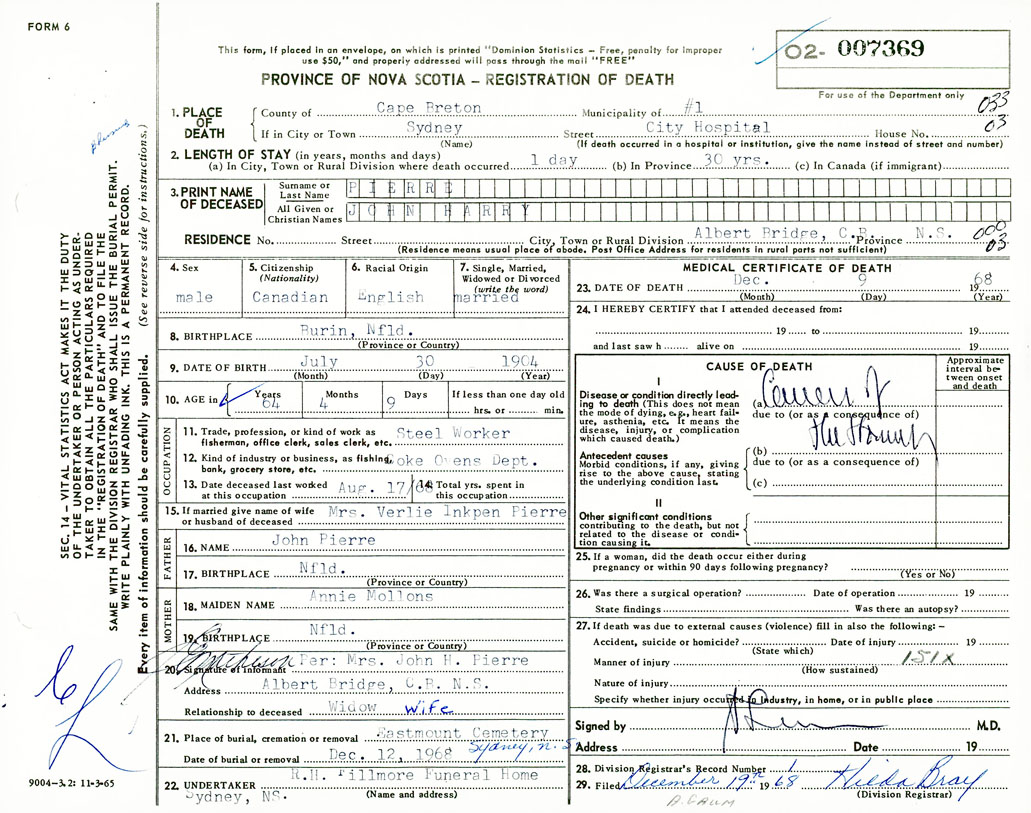 FORM 6
This form, if placed in an envelope, on which is printed "Dominion Statistics – Free, penalty for improper
use $50," and properly addressed will pass through the mail "FREE"
PROVINCE OF NOVA SCOTIA – REGISTRATION OF DEATH
O2- 007369
For use of the Department only
033
03
1. PLACE OF DEATH
County of Cape Breton Municipality of #1
If in City or Town Sydney Street City Hospital House No.
(Name) (If death occurred in a hospital or institution, give the name instead of street and number)
2. LENGTH OF STAY (in years, months and days)
(a) In City, Town or Rural Division where death occurred 1 day (b) In Province 30 yrs. (c) In Canada (if immigrant)
3. PRINT NAME OF DECEASED
Surname or Last Name PIERRE
All Given or Christian Names JOHN HARRY
RESIDENCE No. Street City, Town or Rural Division Albert Bridge, C.B. Province N.S.
(Residence means usual place of abode. Post Office Address for residents in rural parts not sufficient)
000
03
4. Sex
male
5. Citizenship
(Nationality)
Canadian
6. Racial Origin
English
7. Single, Married,
Widowed or Divorced
(write the word)
married
8. BIRTHPLACE Burin, Nfld.
(Province or Country)
9. DATE OF BIRTH July 30 1904
(Month) (Day) (Year)
10. AGE in Years 64 Months 4 Days 9 If less than one day old
hrs. or min.
OCCUPATION
11. Trade, profession, or kind of work as Steel Worker
fisherman, office clerk, sales clerk, etc.
12. Kind of industry or business, as fishing, Coke Ovens Dept.
bank, grocery store, etc.
13. Date deceased last worked
at this occupation Aug. 17/68
14. Total yrs. spent in
this occupation
15. If married give name of wife
or husband of deceased Mrs. Verlie Inkpen Pierre
FATHER
16. NAME John Pierre
17. BIRTHPLACE Nfld.
(Province or Country)
MOTHER
18. MAIDEN NAME Annie Mollons
19. BIRTHPLACE Nfld.
(Province or Country)
20. Signature of Informant Per: Mrs. John H. Pierre
Address Albert Bridge, C.B. N.S.
Relationship to deceased Widow wife
21. Place of burial, cremation or removal Eastmount Cemetery
Sydney, N.S.
Date of burial or removal Dec. 12, 1968
22. UNDERTAKER R.H. Fillmore Funeral Home
Sydney, NS. (Name and address)
MEDICAL CERTIFICATE OF DEATH
23. DATE OF DEATH Dec. 9 1968
(Month) (Day) (Year)
24. I HEREBY CERTIFY that I attended deceased from:
19 to 19
and last saw h alive on 19
CAUSE OF DEATH
Approximate
interval be-
tween onset
and death
I
Disease or condition directly lead-
ing to death (This does not mean
the mode of dying, e.g., heart fail-
ure, asthenia, etc. It means the
disease, injury, or complication
which caused death.)
(a) Cancer of
due to (or as a consequence of)
the Stomach
Antecedent causes
Morbid conditions, if any, giving
rise to the above cause, stating
the underlying condition last.
(b)
due to (or as a consequence of)
(c)
II
Other significant conditions
contributing to the death, but not
related to the disease or condi-
tion causing it.
25. If a woman, did the death occur either during
pregnancy or within 90 days following pregnancy?
(Yes or No)
26. Was there a surgical operation? Date of operation 19
State findings Was there an autopsy?
27. If death was due to external causes (violence) fill in also the following: –
Accident, suicide or homicide? Date of injury 19
(State which)
Manner of injury 151X
(How sustained)
Nature of injury
Specify whether injury occurred in Industry, in home, or in public place
Signed by M.D.
Address Date 19
28. Division Registrar's Record Number
29. Filed December 19th 1968 Hilda Bray
(Division Registrar)
SEC. 14 – VITAL STATISTICS ACT MAKES IT THE DUTY
OF THE UNDERTAKER OR PERSON ACTING AS UNDER-
TAKER TO OBTAIN ALL THE PARTICULARS REQUIRED
IN THE "REGISTRATION OF DEATH" AND TO FILE THE
SAME WITH THE DIVISION REGISTRAR WHO SHALL ISSUE THE BURIAL PERMIT.
WRITE PLAINLY WITH UNFADING INK. THIS IS A PERMANENT RECORD.
Every item of information should be carefully supplied. (See reverse side for instructions.)
9004–3.2: 11-3-65